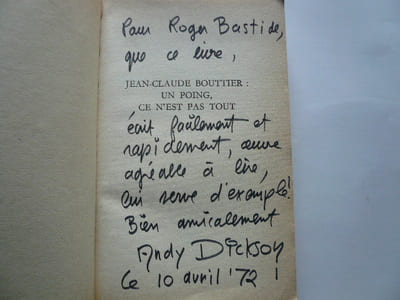 Pour Roger Bastide,
que ce livre,
JEAN-CLAUDE BOUTTIER :
UN POING,
CE N'EST PAS TOUT
écrit facilement et
rapidement, œuvre
agréable à lire,
lui serve d'exemple!
Bien amicalement
Andy Dickson
Ce 10 avril '72 !